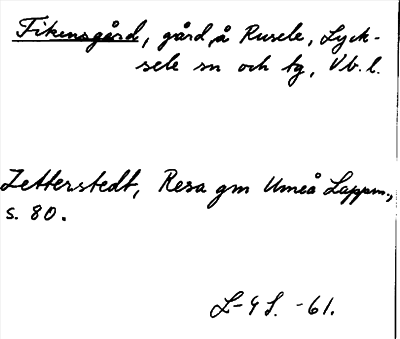 Fikensgård, gård å Rusele, Lyck-
sele sn och tg, Vb. l.
Zetterstedt, Resa gm Umeå Lappm.,
s. 80.
L-4 S. -61.